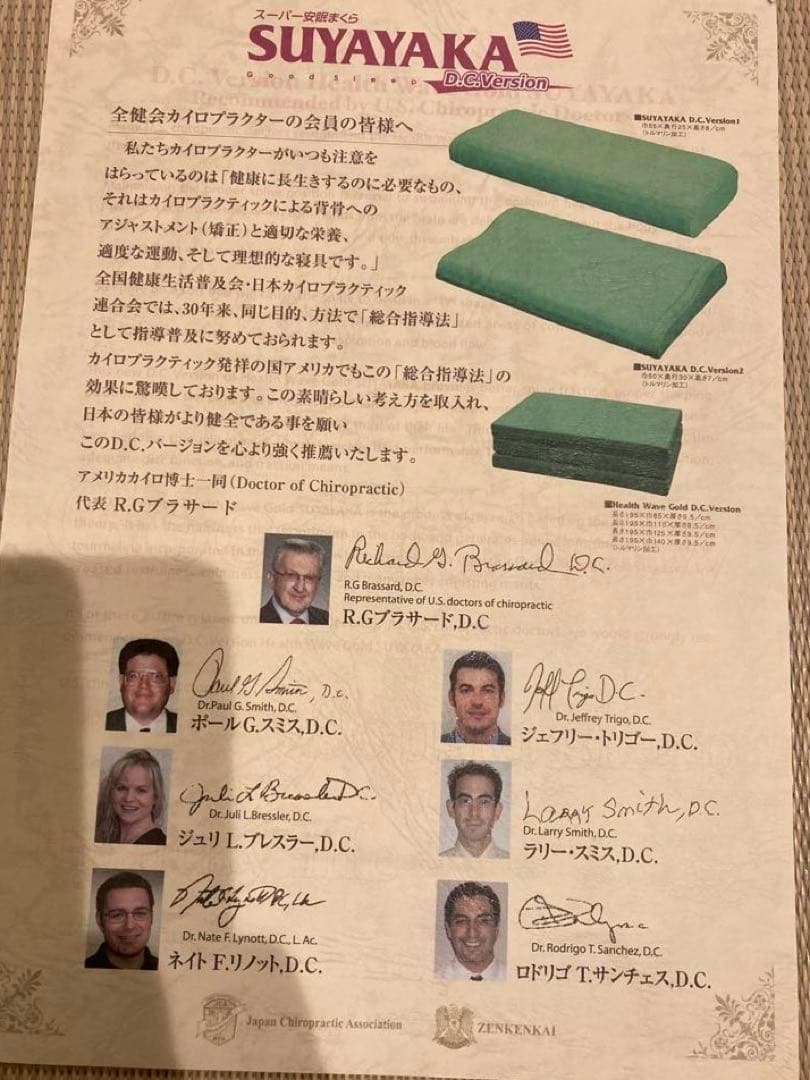 スーパー安眠まくら
SUYAYAKA
Good Sleep D.C.Version
全健会カイロプラクターの会員の皆様へ
私たちカイロプラクターがいつも注意を
はらっているのは「健康に長生きするのに必要なもの、
それはカイロプラクティックによる背骨への
アジャストメント(矯正)と適切な栄養、
適度な運動、そして理想的な寝具です。」
全国健康生活普及会・日本カイロプラクティック
連合会では、30年来、同じ目的、方法で「総合指導法」
として指導普及に努めておられます。
カイロプラクティック発祥の国アメリカでもこの「総合指導法」の
効果に驚嘆しております。この素晴らしい考え方を取入れ、
日本の皆様がより健全である事を願い
このD.C.バージョンを心より強く推薦いたします。
アメリカカイロ博士一同(Doctor of Chiropractic)
代表 R.Gブラサード
■SUYAYAKA D.C.Version1
巾55×奥行25×高さ8/cm
(トルマリン加工)
■SUYAYAKA D.C.Version2
巾50×奥行30×高さ7/cm
(トルマリン加工)
■Health Wave Gold D.C.Version
長さ195×巾85×厚さ9.5/cm
長さ195×巾110×厚さ9.5/cm
長さ195×巾125×厚さ9.5/cm
長さ195×巾140×厚さ9.5/cm
(トルマリン加工)
Richard G. Brassard D.C.
R.G Brassard, D.C.
Representative of U.S. doctors of chiropractic
R.Gブラサード,D.C
Paul G Smith, D.C.
Dr.Paul G. Smith, D.C.
ポール G.スミス,D.C.
Jeff Trigo D.C.
Dr. Jeffrey Trigo, D.C.
ジェフリー・トリゴー,D.C.
Juli L Bressler D.C.
Dr. Juli L.Bressler, D.C.
ジュリ L.ブレスラー,D.C.
Larry Smith, D.C.
Dr. Larry Smith, D.C.
ラリー・スミス,D.C.
Dr. Nate F. Lynott, D.C., L. Ac.
ネイト F.リノット,D.C.
Dr. Rodrigo T. Sanchez, D.C.
ロドリゴ T.サンチェス,D.C.
Japan Chiropractic Association
ZENKENKAI